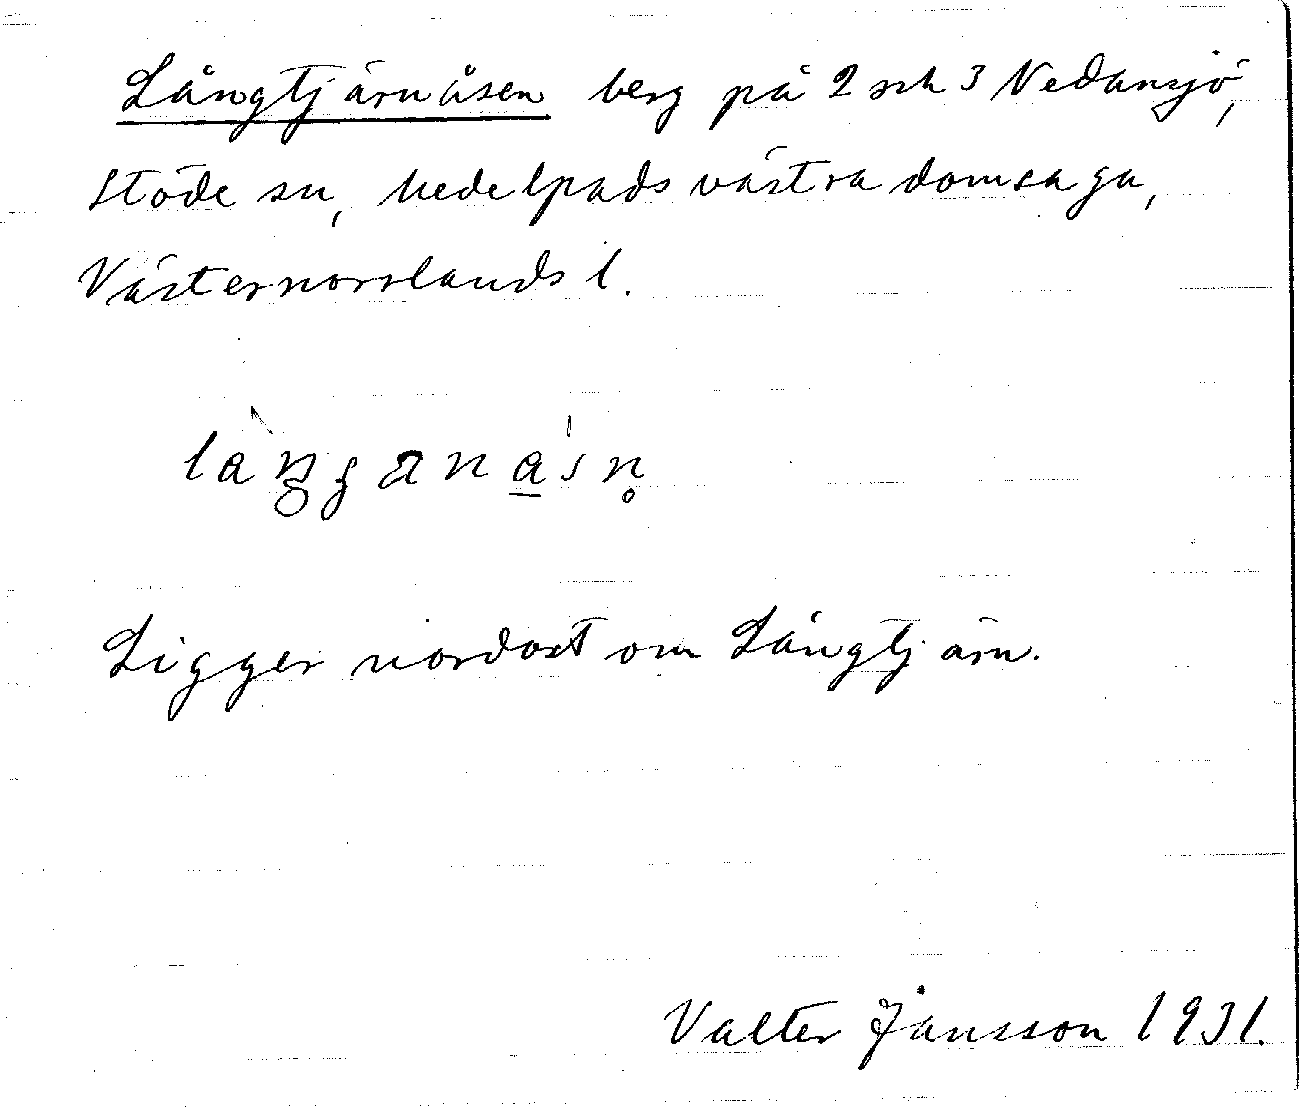 Långtjärnåsen berg på 2 och 3 Vedansjö,
Stöde sn, Medelpads västra domsaga,
Västernorrlands l.
Ligger nordost om Långtjärn.
Valter Jansson 1931.